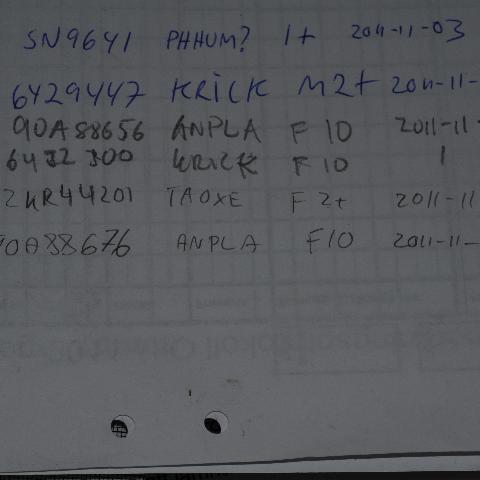 SN9641 PHHUM? 1+ 2011-11-03
6429447 KRICK M2+ 2011-11-
90A88656 ANPLA F 10 2011-11
6432300 KRICK F 10 1
2KR44201 TAOXE F 2+ 2011-11
90A88676 ANPLA F10 2011-11-